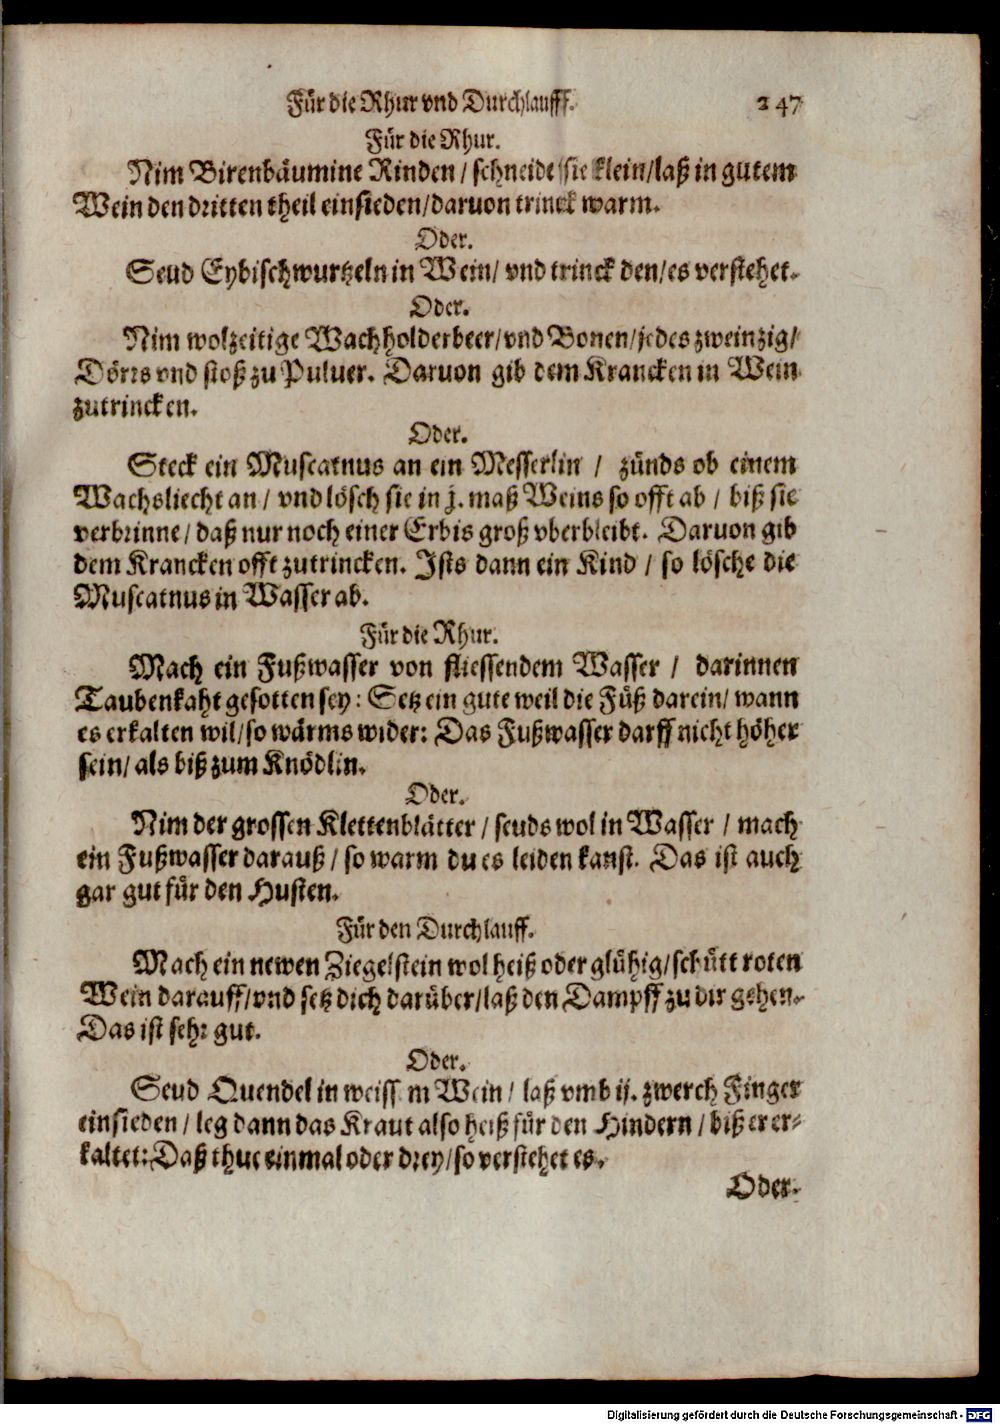 Für die Rhur vnd Durchlauff. 247
Für die Rhur.
Nim Birenbäumine Rinden / schneide sie klein/laß in gutem
Wein den dritten theil einsieden/daruon trinck warm.
Oder.
Seud Eybischwurtzeln in Wein/ vnd trinck den/es verstehet.
Oder.
Nim wolzeitige Wachholderbeer/vnd Bonen/jedes zweinzig/
Dörrs vnd stoß zu Puluer. Daruon gib dem Krancken in Wein
zutrincken.
Oder.
Steck ein Muscatnus an ein Messerlin / zünds ob einem
Wachsliecht an/ vnd lösch sie in j. maß Weins so offt ab / biß sie
verbrinne/daß nur noch einer Erbis groß vberbleibt. Daruon gib
dem Krancken offt zutrincken. Ists dann ein Kind / so lösche die
Muscatnus in Wasser ab.
Für die Rhur.
Mach ein Fußwasser von fliessendem Wasser / darinnen
Taubenkaht gesotten sey: Setz ein gute weil die Füß darein/ wann
es erkalten wil/so wärms wider: Das Fußwasser darff nicht höher
sein/ als biß zum Knödlin.
Oder.
Nim der grossen Klettenblätter / seuds wol in Wasser / mach
ein Fußwasser darauß / so warm du es leiden kanst. Das ist auch
gar gut für den Husten.
Für den Durchlauff.
Mach ein newen Ziegelstein wol heiß oder glühig/schütt roten
Wein darauff/vnd setz dich darüber/laß den Dampff zu dir gehen.
Das ist sehr gut.
Oder.
Seud Quendel in weissem Wein / laß vmb ij. zwerch Finger
einsieden / leg dann das Kraut also heiß für den Hindern / biß er er-
kaltet: Daß thue einmal oder drey/so verstehet es.
Oder.
Digitalisierung gefördert durch die Deutsche Forschungsgemeinschaft - DFG